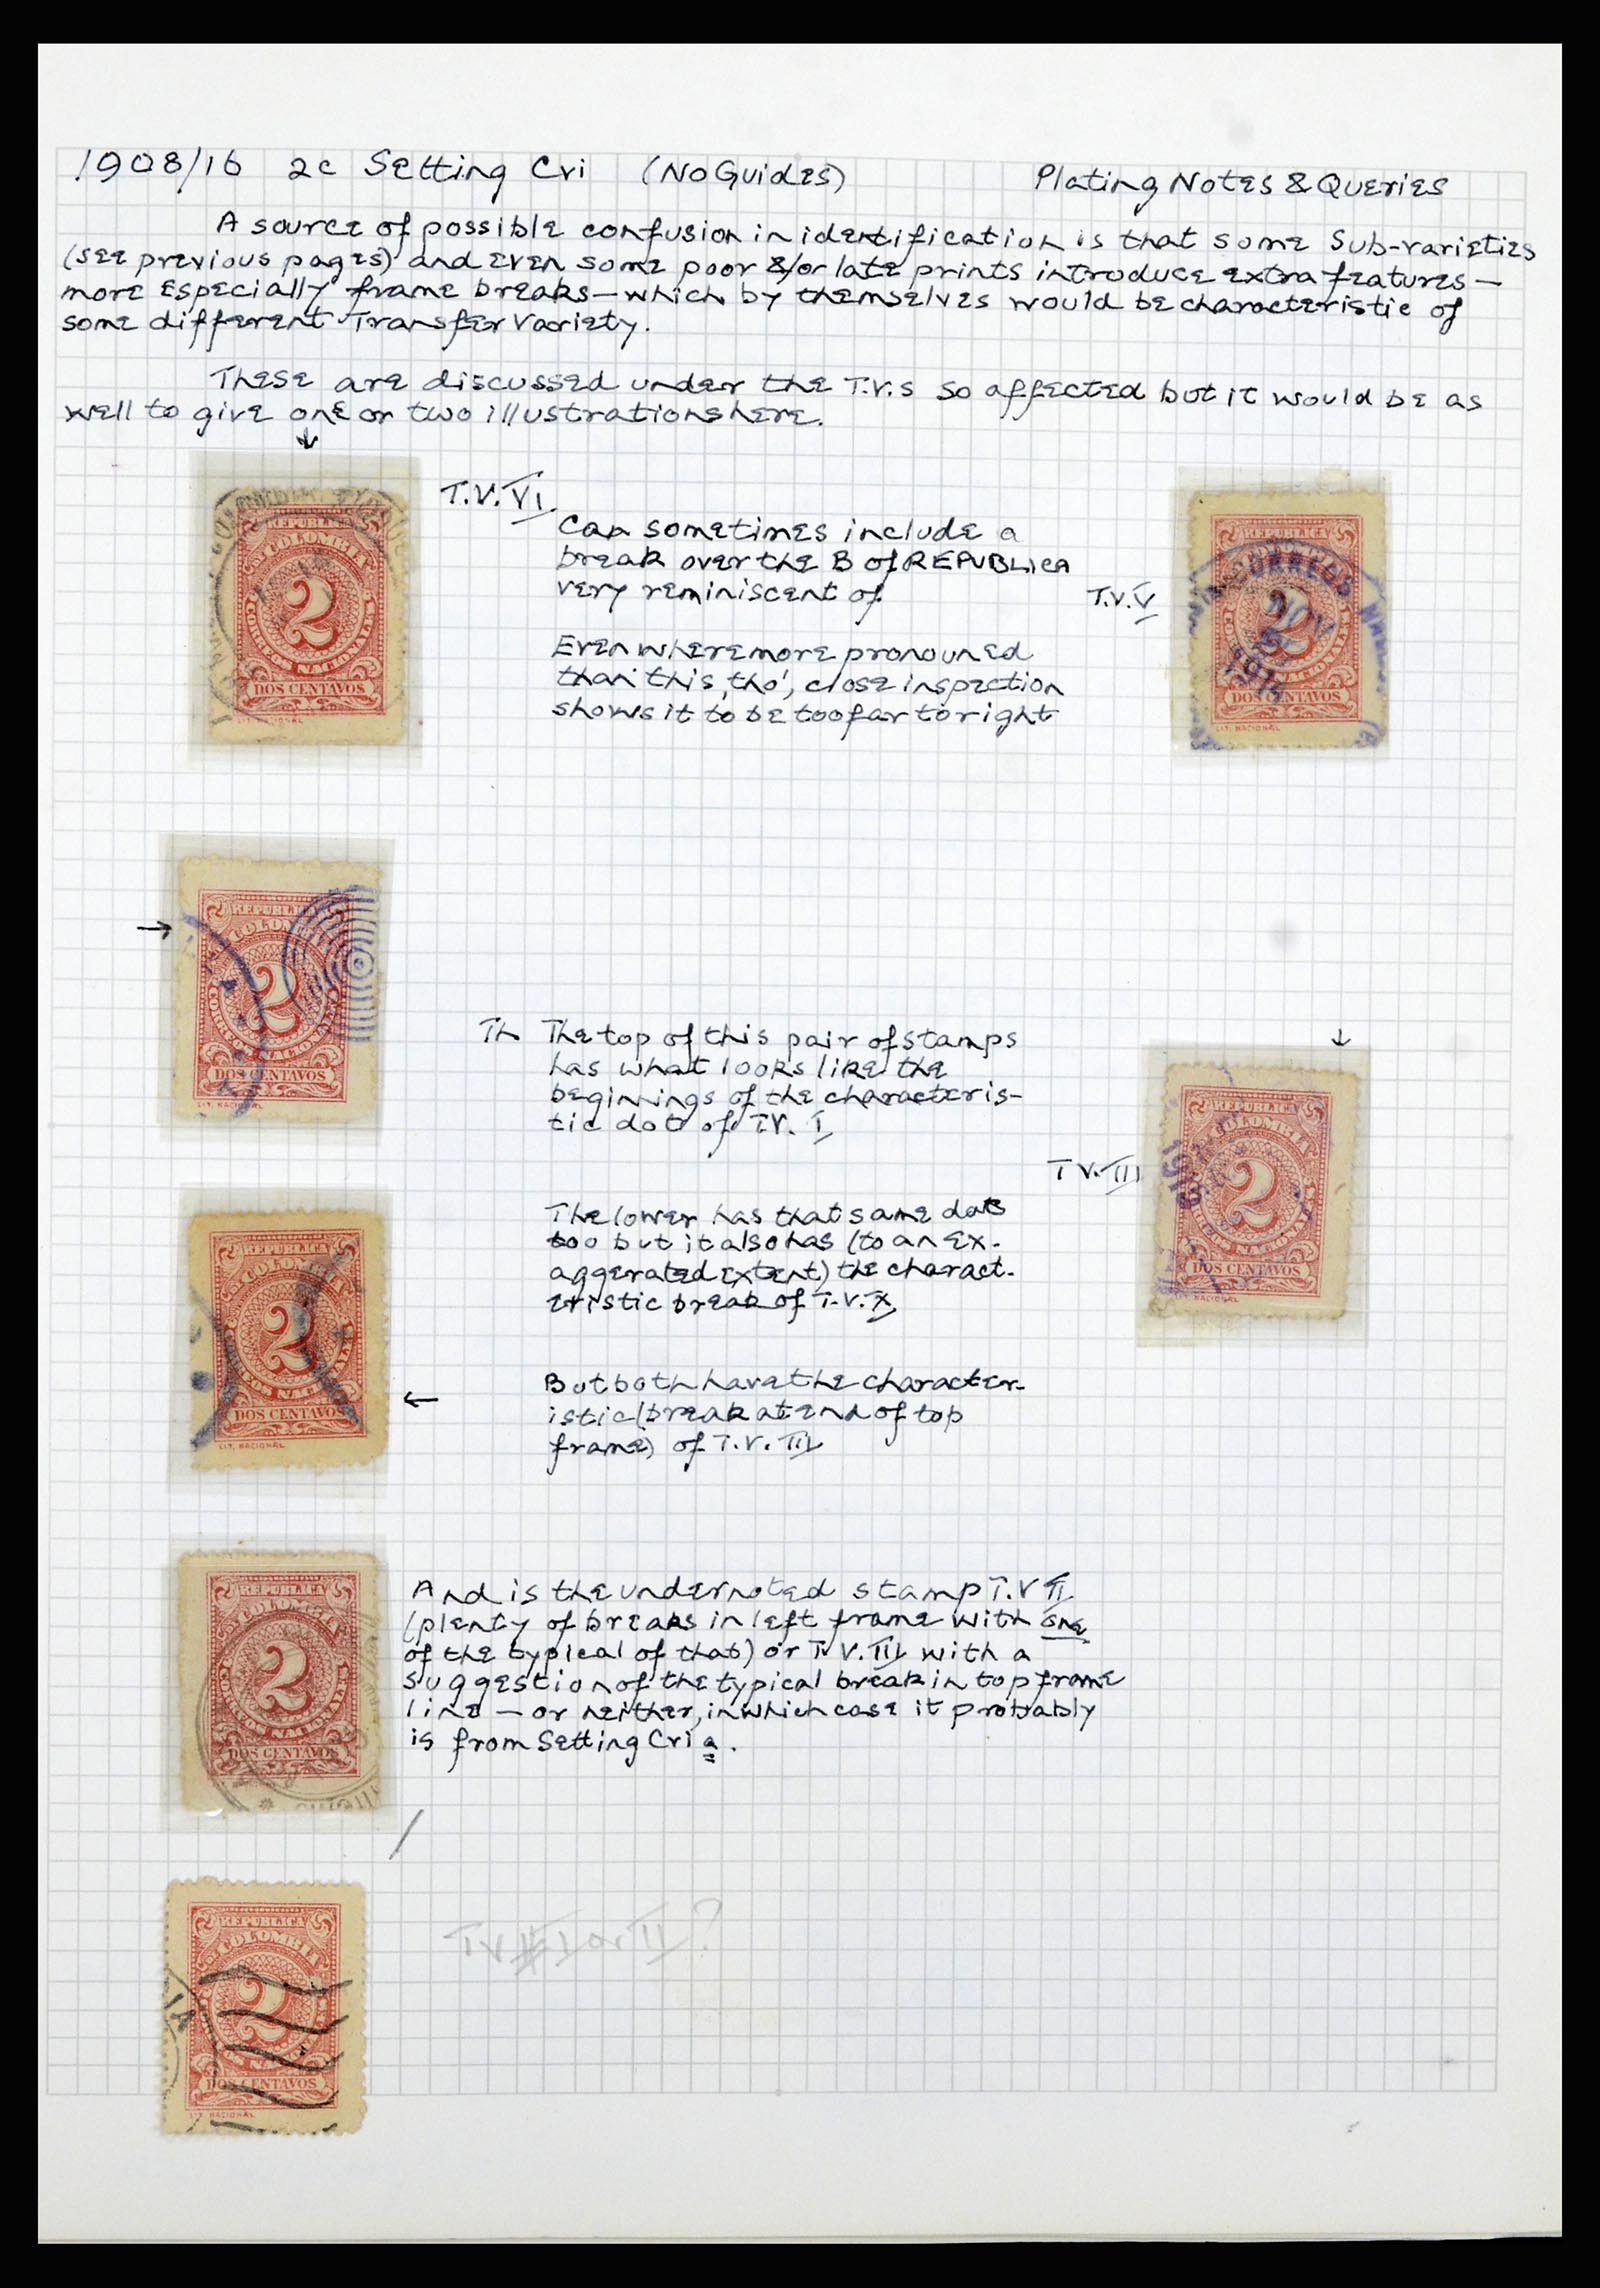 1908/16 2c Setting Cvi (No Guides) Plating Notes & Queries
A source of possible confusion in identification is that some Sub-varieties
(see previous pages) and even some poor &/or late prints introduce extra features—
more especially frame breaks—which by themselves would be characteristic of
some different Transfer Variety.
These are discussed under the T.V.s so affected but it would be as
well to give one or two illustrations here.
T.V. VI
Can sometimes include a
break over the B of REPUBLICA
very reminiscent of
T.V. V
Even where more pronounced
than this, tho', close inspection
shows it to be too far to right
REPUBLICA
COLOMBIA
2
CORREOS NACIONALES
DOS CENTAVOS
LIT. NACIONAL
REPUBLICA
CORREOS
NOV
1914
2
DOS CENTAVOS
LIT. NACIONAL
REPUBLICA
COLOMBIA
2
CORREOS NACIONALES
DOS CENTAVOS
LIT. NACIONAL
Th The top of this pair of stamps
has what looks like the
beginnings of the characteris-
tic dot of T.V. I
T V. III
REPUBLICA
COLOMBIA
2
CORREOS NACIONALES
DOS CENTAVOS
LIT. NACIONAL
The lower has that same dot
too but it also has (to an ex-
aggerated extent) the charact-
eristic break of T.V. X
REPUBLICA
COLOMBIA
2
CORREOS NACIONALES
DOS CENTAVOS
LIT. NACIONAL
But both have the character-
istic (break at end of top
frame) of T.V. III
And is the undernoted stamp T.V II
(plenty of breaks in left frame with one
of the typical of that) or T.V. III with a
suggestion of the typical break in top frame
line — or neither, in which case it probably
is from Setting Cvi a.
REPUBLICA
COLOMBIA
2
CORREOS NACIONALES
DOS CENTAVOS
TV I or II ?
REPUBLICA
COLOMBIA
2
CORREOS NACIONALES
DOS CENTAVOS
LIT. NACIONAL